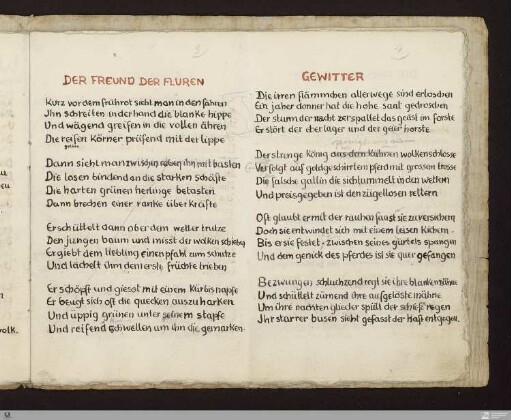 DER FREUND DER FLUREN
Kurz vor dem frührot sieht man in den fähren
Ihn schreiten in der hand die blanke hippe
Und wägend greifen in die vollen ähren
Die reifen Körner prüfend mit der lippe
Dann sieht man zwischen reben ihn mit basten
Die losen binden an die starken schäfte
Die harten grünen herlinge betasten
Dann brechen einer ranke überkräfte
Er schüttelt dann ob er dem wetter trutze
Den jungen baum und misst der wolken schieben
Er giebt dem liebling einen pfahl zum schutze
Und lächelt ihm dem erste früchte trieben
Er schöpft und giesst mit einem Kürbisnapfe
Er beugt sich oft die quecken auszuharken
Und üppig grünen unter seinem stapfe
Und reifend schwellen um ihn die gemarken.
GEWITTER
Die irren flämmchen allerwege sind erloschen
Ein jäher donner hat die hohe saat gedroschen
Der sturm der nacht zerspaltet das geäst im forste
Er stört der eber lager und der geier horste.
Der strenge König aus dem wolkenschlosse
Verfolgt auf goldgeschirrten pferd mit grossem trosse
Die falsche gattin die sich tummelt in den wettern
Und preisgegeben ist den zügellosen rettern
Oft glaubt er mit der rauhen faust sie zu versichern
Doch sie entwindet sich mit einem leisen kichern
Bis er sie festet - zwischen seines gürtels spangen
Und dem genick des pferdes ist sie quer gefangen
Bezwungen schluchzend regt sie ihre blanken
Und schüttelt zürnend ihre aufgelöste mähne
Um ihre nackten glieder spült der schiefe regen
Ihr starrer busen sieht gefasst der haft entgegen.
volk.